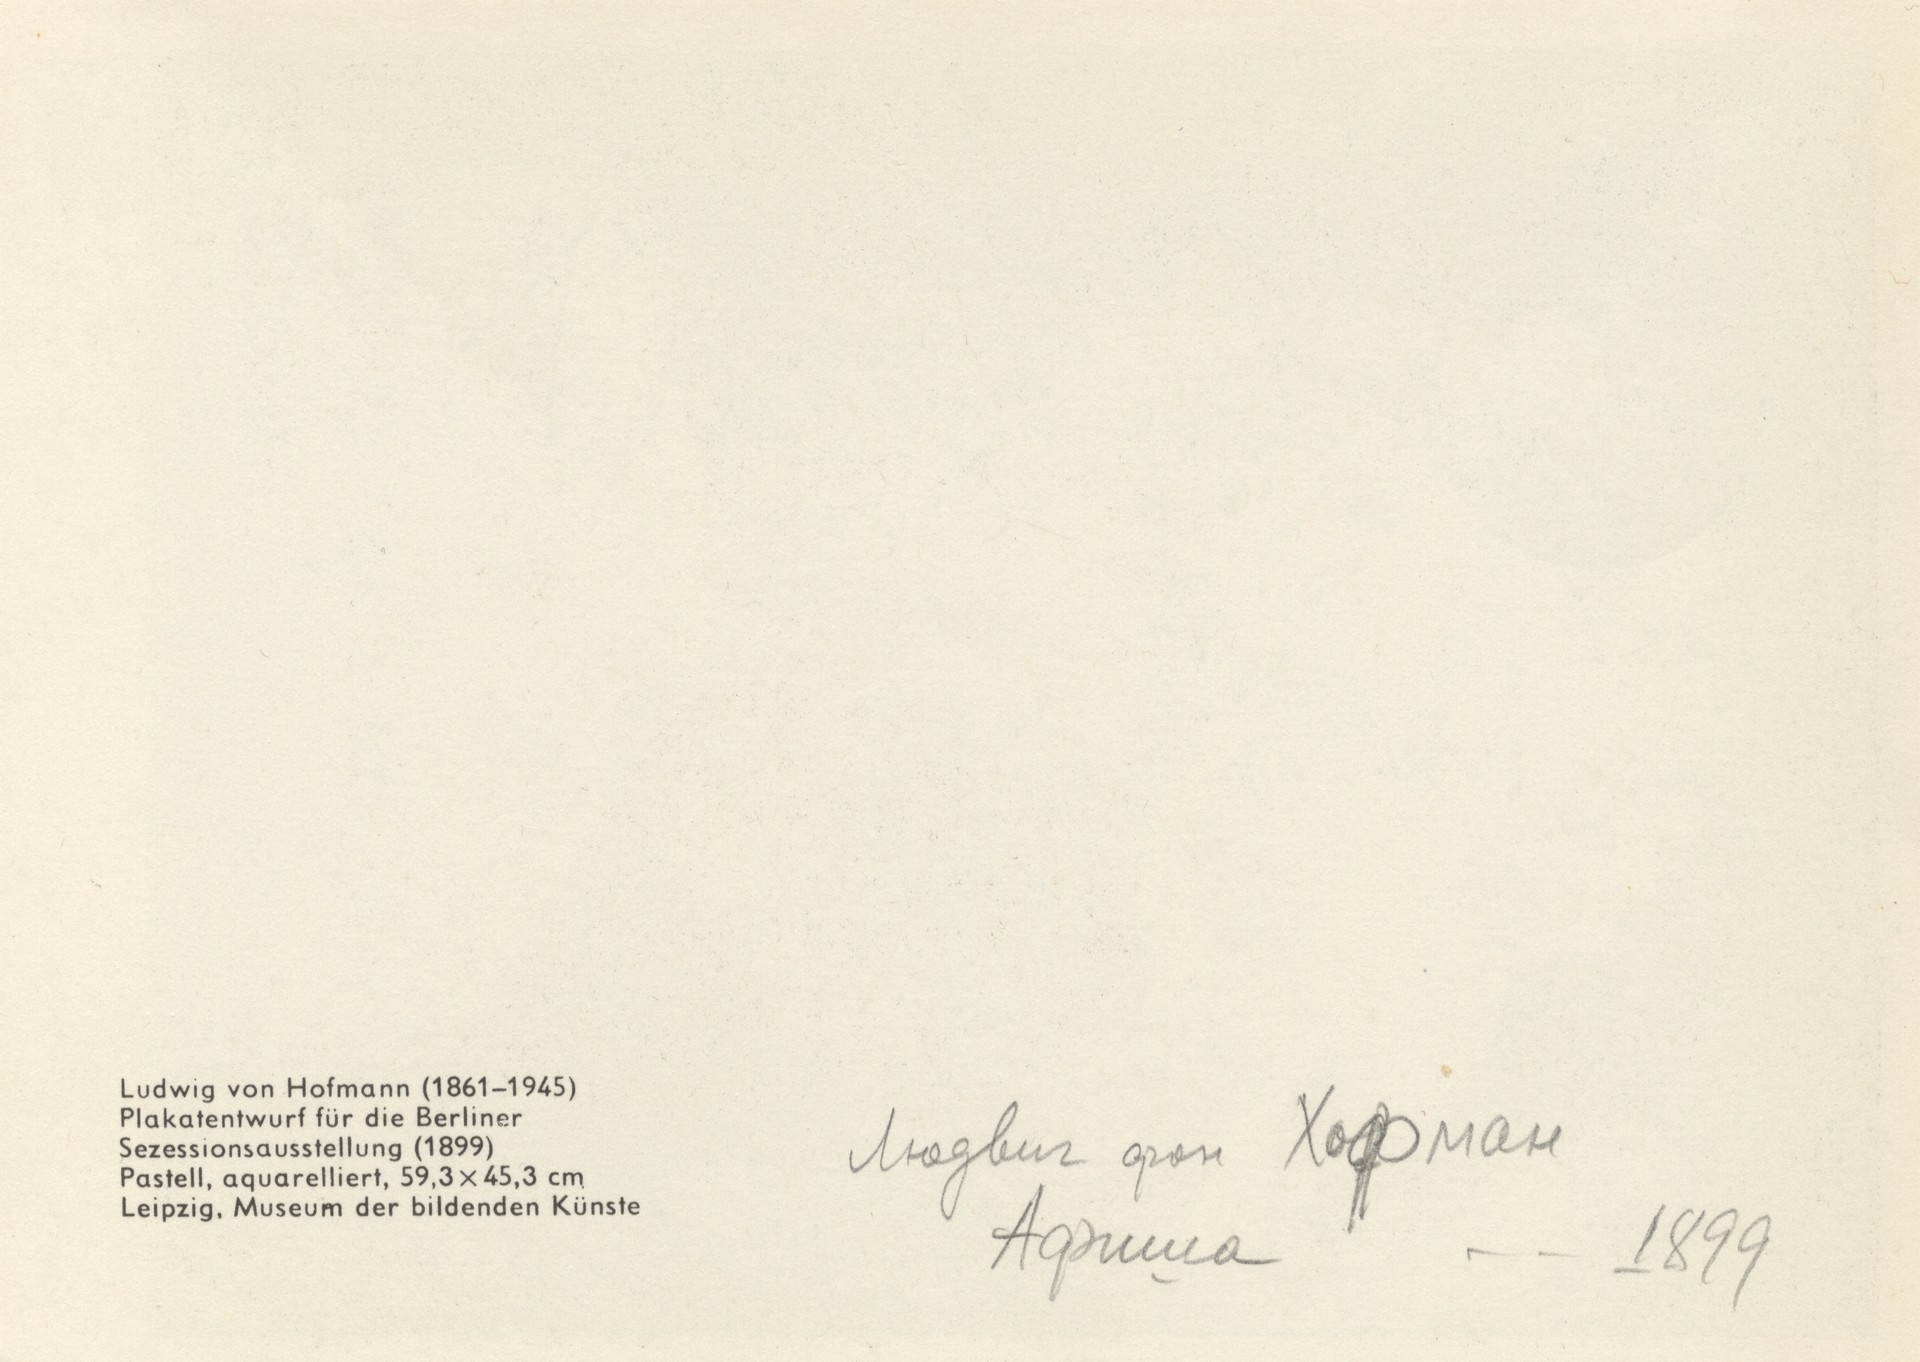 Ludwig von Hofmann (1861–1945)
Plakatentwurf für die Berliner
Sezessionsausstellung (1899)
Pastell, aquarelliert, 59,3 × 45,3 cm
Leipzig, Museum der bildenden Künste
Людвиг фон Хофман
Афиша — — 1899